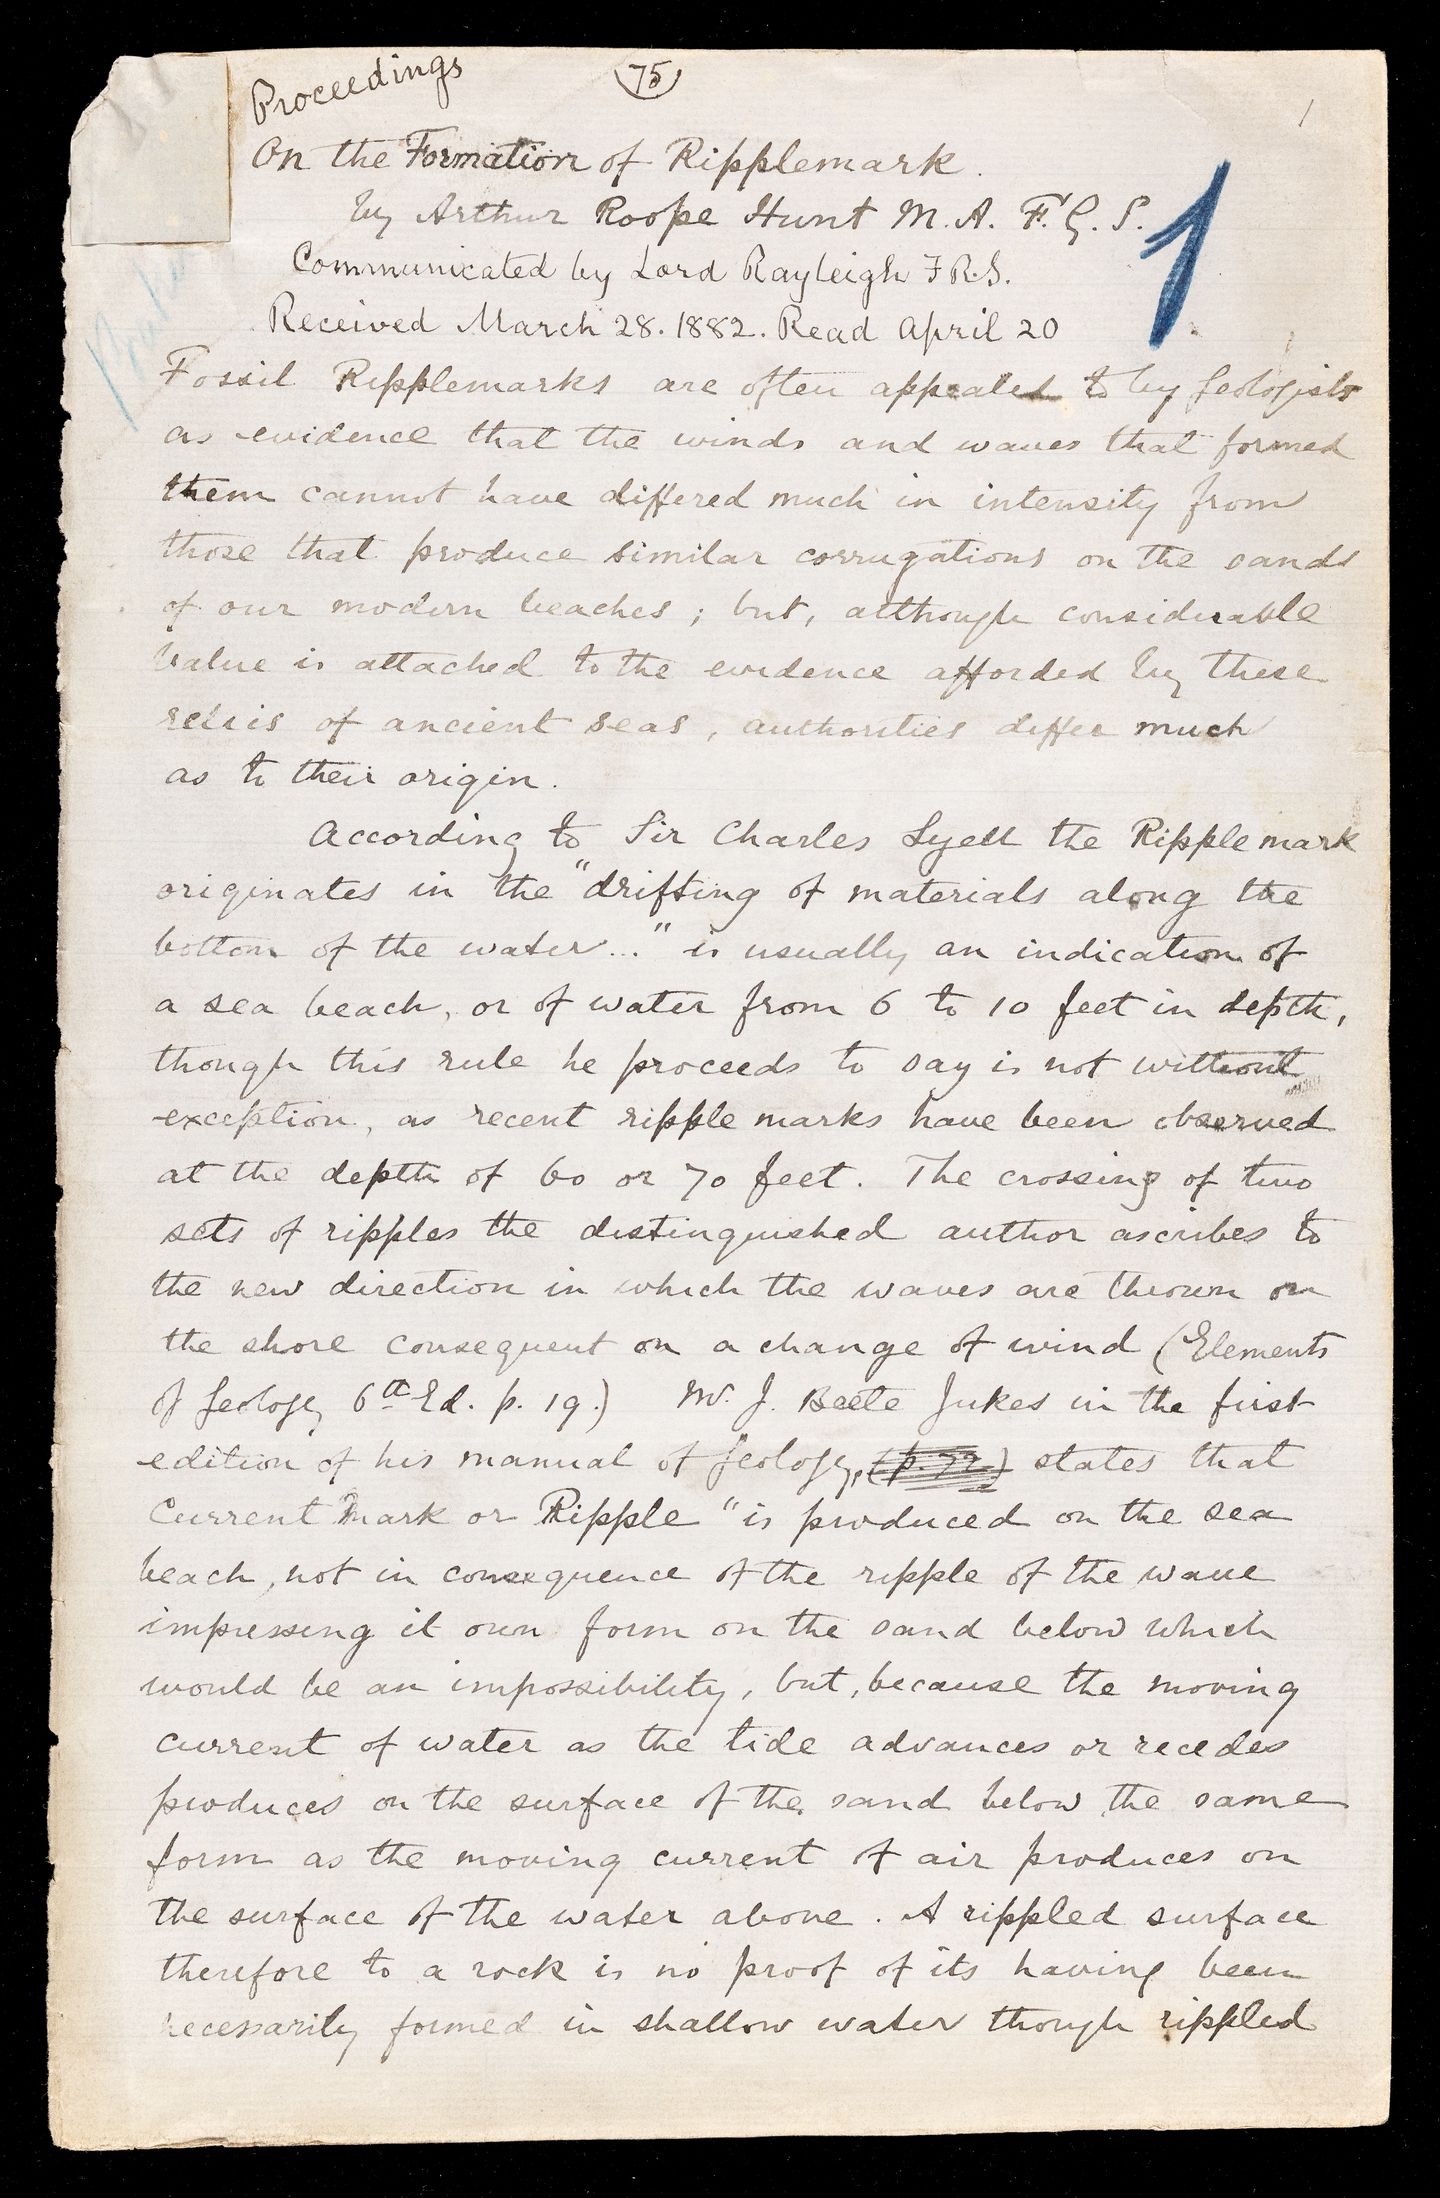 Proceedings
75
1
On the Formation of Ripplemark.
by Arthur Roope Hunt M.A. F.G.S.
1
Communicated by Lord Rayleigh F.R.S.
Received March 28. 1882. Read April 20
Fossil Ripplemarks are often appealed to by geologists
as evidence that the winds and waves that formed
them cannot have differed much in intensity from
those that produce similar corrugations on the sands
of our modern beaches; but, although considerable
value is attached to the evidence afforded by these
relics of ancient seas, authorities differ much
as to their origin.
According to Sir Charles Lyell the Ripplemark
originates in the "drifting of materials along the
bottom of the water..." is usually an indication of
a sea beach, or of water from 6 to 10 feet in depth,
though this rule he proceeds to say is not without
exception, as recent ripple marks have been observed
at the depth of 60 or 70 feet. The crossing of two
sets of ripples the distinguished author ascribes to
the new direction in which the waves are thrown on
the shore consequent on a change of wind (Elements
of Geology 6th Ed. p. 19.) Mr. J. Beete Jukes in the first
edition of his manual of Geology, states that
Current Mark or Ripple "is produced on the sea
beach, not in consequence of the ripple of the wave
impressing it own form on the sand below which
would be an impossibility, but, because the moving
current of water as the tide advances or recedes
produces on the surface of the sand below the same
form as the moving current of air produces on
the surface of the water above. A rippled surface
therefore to a rock is no proof of its having been
necessarily formed in shallow water though rippled